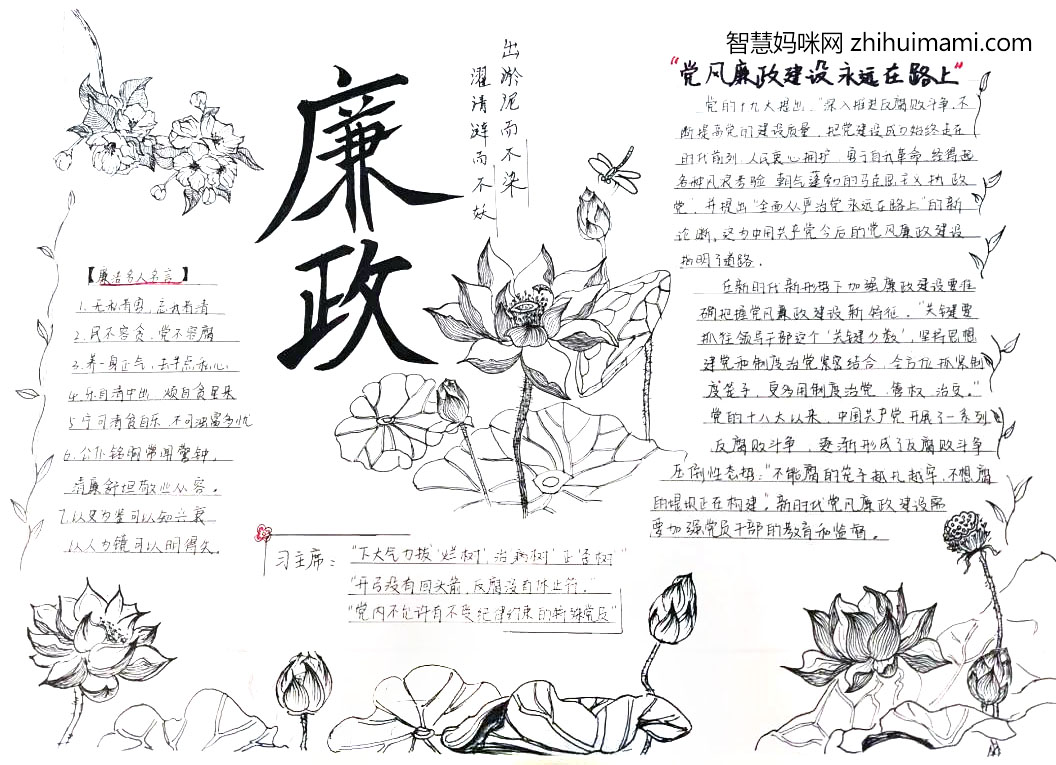 智慧妈咪网 zhihuimami.com
廉政
出淤泥而不染
濯清涟而不妖
【廉洁名人名言】
1. 无私者宽，忘我者清
2. 民不容贪，党不容腐
3. 养一身正气，去半点私心
4. 乐自清中出，烦自贪里来
5 宁可清贫自乐，不可浊富多忧
6. 公仆铭胸常闻警钟，
清廉舒坦敬业从容。
7. 以史为鉴可以知兴衰
以人为镜可以明得失。
习主席：“下大气力拔‘烂树’，治‘病树’正‘歪树’”
“开弓没有回头箭，反腐没有休止符。”
“党内不允许有不受纪律约束的特殊党员”
“党风廉政建设永远在路上”
党的十九大提出，“深入推进反腐败斗争，不
断提高党的建设质量，把党建设成为始终走在
时代前列、人民衷心拥护、勇于自我革命、经得起
各种风浪考验、朝气蓬勃的马克思主义执政
党”，并提出“全面从严治党永远在路上”的新
论断。这为中国共产党今后的党风廉政建设
指明了道路。
在新时代新形势下加强廉政建设要准
确把握党风廉政建设新特征，“关键要
抓住领导干部这个‘关键少数’，坚持思想
建党和制度治党紧密结合，全方位扎紧制
度笼子，更多用制度治党、管权、治吏。”
党的十八大以来，中国共产党开展了一系列
反腐败斗争，逐渐形成了反腐败斗争
压倒性态势：“不能腐的笼子越扎越牢，不想腐
的堤坝正在构建。”新时代党风廉政建设需
要加强党员干部的教育和监督。